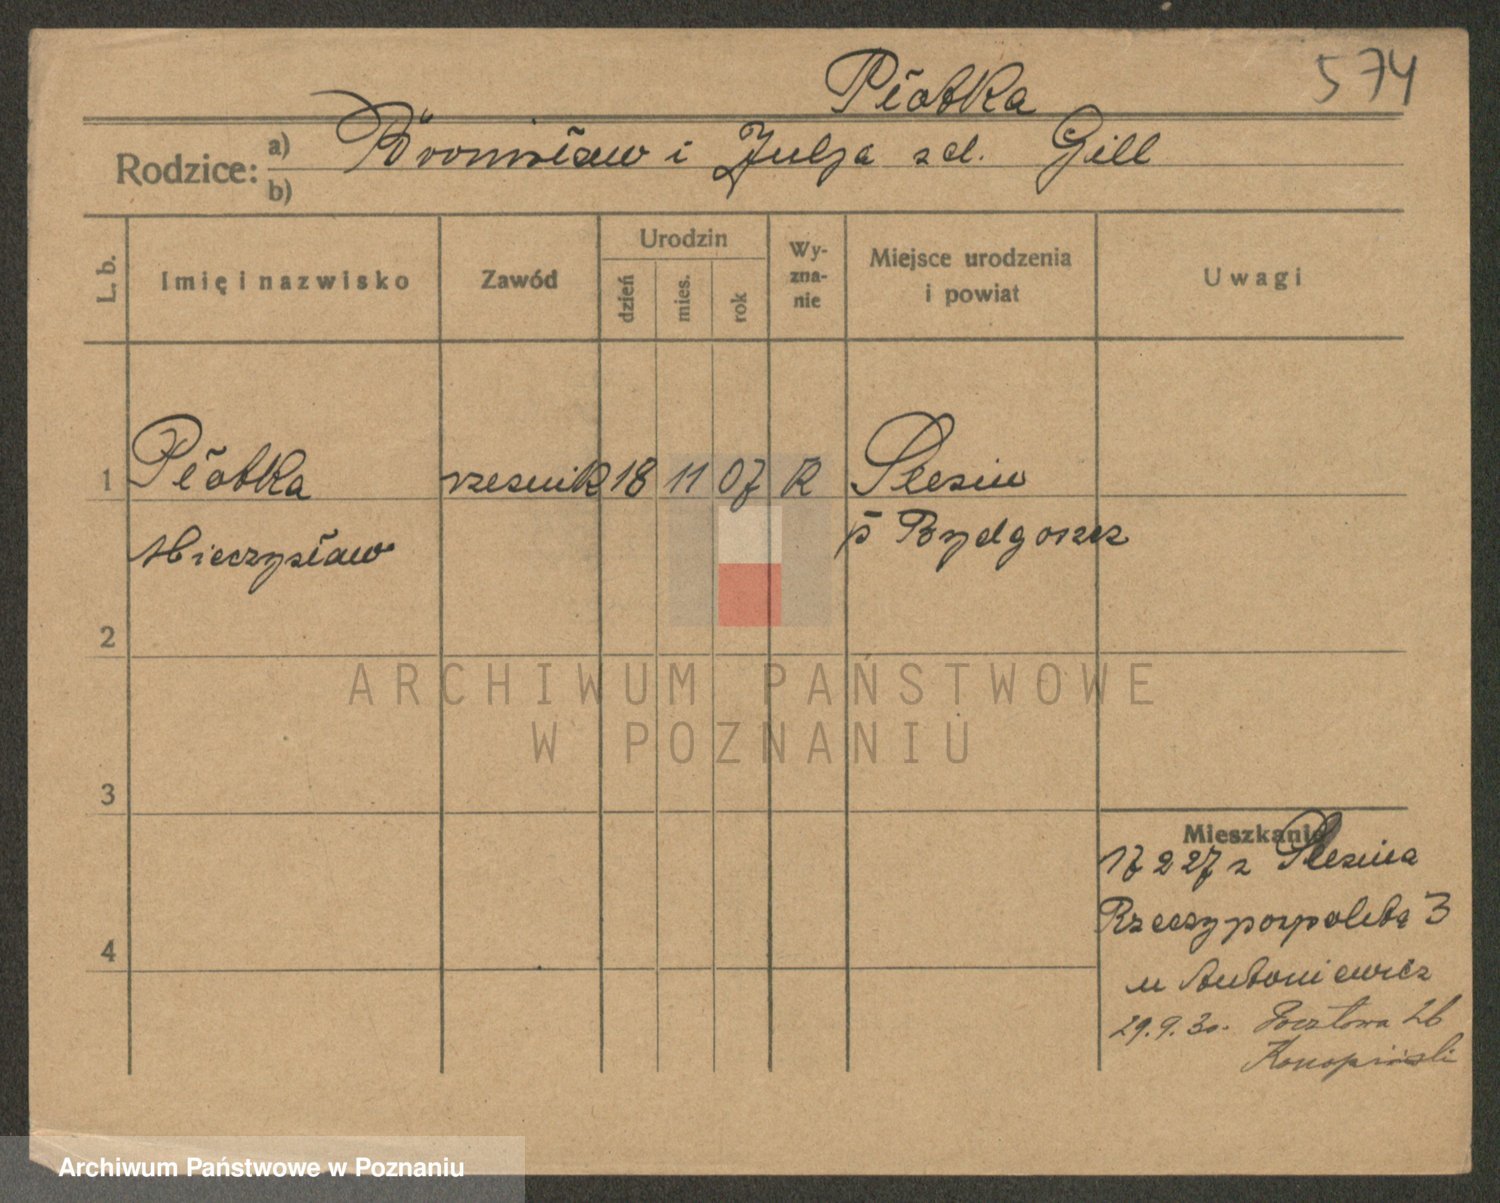 Płotka
574
Rodzice: a) Bronisław i Julja zd. Gill
b)
L. b.
Imię i nazwisko
Zawód
Urodzin
dzień
mies.
rok
Wy-
zna-
nie
Miejsce urodzenia
i powiat
Uwagi
1 Płotka rzeźnik 18 11 07 R Ślesin
Mieczysław p Bydgoszcz
2
3
4
ARCHIWUM PAŃSTWOWE
W POZNANIU
Mieszkanie
17 2 27 z Ślesina
Rzeczypospolita 3
u Antoniewicz
29.9.30. Pocztowa 26
Konopiński
Archiwum Państwowe w Poznaniu